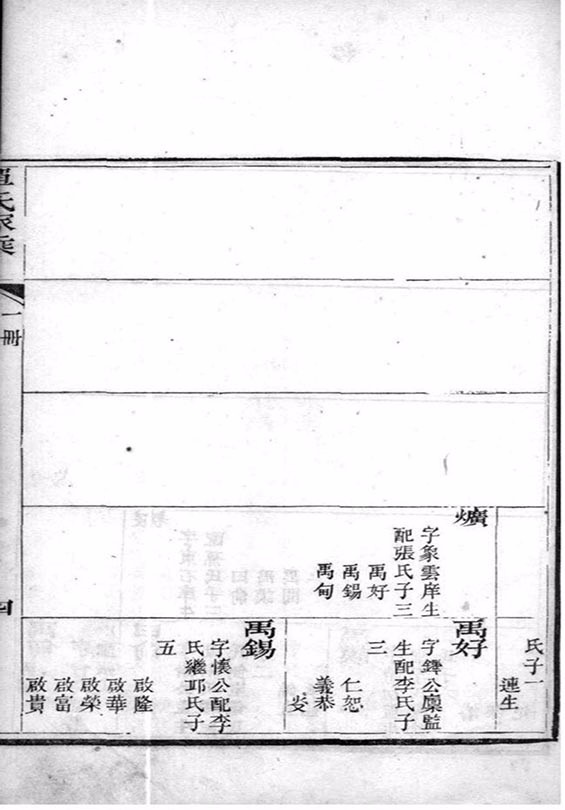 氏子一
連生
爌
字象雲庠生
配張氏子三
禹好
禹錫
禹甸
禹好
字鐸公廩監
生配李氏子
三
仁恕
義恭
禹錫
字懐公配李
氏繼邛氏子
五
啟隆
啟華
啟榮
啟富
啟貴
氏家乘
一冊
四